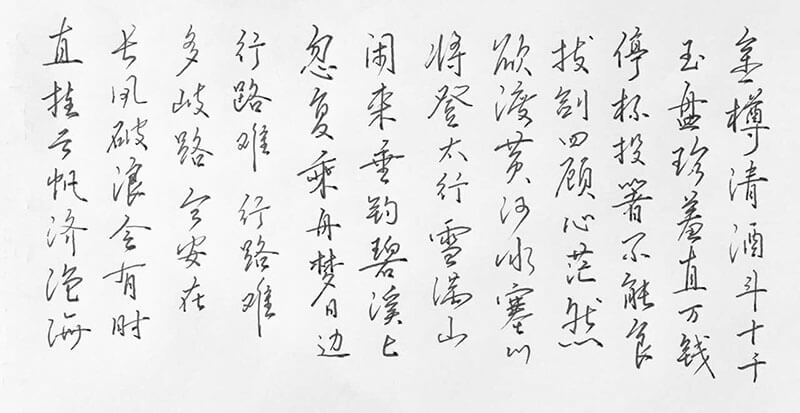 金樽清酒斗十千
玉盘珍羞直万钱
停杯投箸不能食
拔剑四顾心茫然
欲渡黄河冰塞川
将登太行雪满山
闲来垂钓碧溪上
忽复乘舟梦日边
行路难 行路难
多岐路 今安在
长风破浪会有时
直挂云帆济沧海